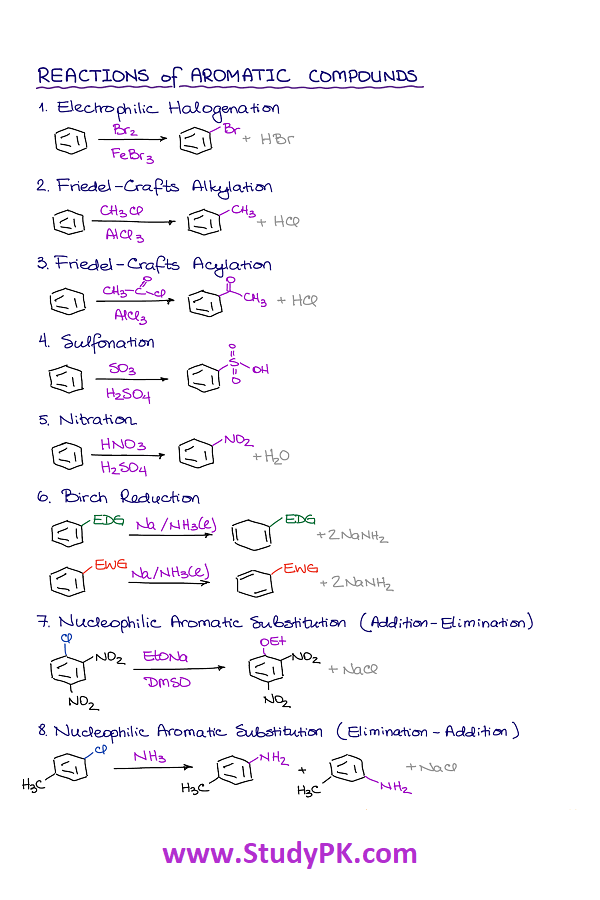 REACTIONS of AROMATIC COMPOUNDS
1. Electrophilic Halogenation
Br2
Br + HBr
FeBr3
2. Friedel-Crafts Alkylation
CH3Cl
CH3 + HCl
AlCl3
3. Friedel-Crafts Acylation
O
CH3-C Cl
O
CH3 + HCl
AlCl3
4. Sulfonation
SO3
O
S OH
O
H2SO4
5. Nitration
HNO3
NO2 + H2O
H2SO4
6. Birch Reduction
EDG Na/NH3(l) EDG + 2NaNH2
EWG Na/NH3(l) EWG + 2NaNH2
7. Nucleophilic Aromatic Substitution (Addition-Elimination)
Cl OEt
NO2 EtONa NO2 + NaCl
DMSO
NO2 NO2
8. Nucleophilic Aromatic Substitution (Elimination-Addition)
Cl NH3 NH2 + NaCl
+
H3C H3C H3C NH2
www.StudyPK.com